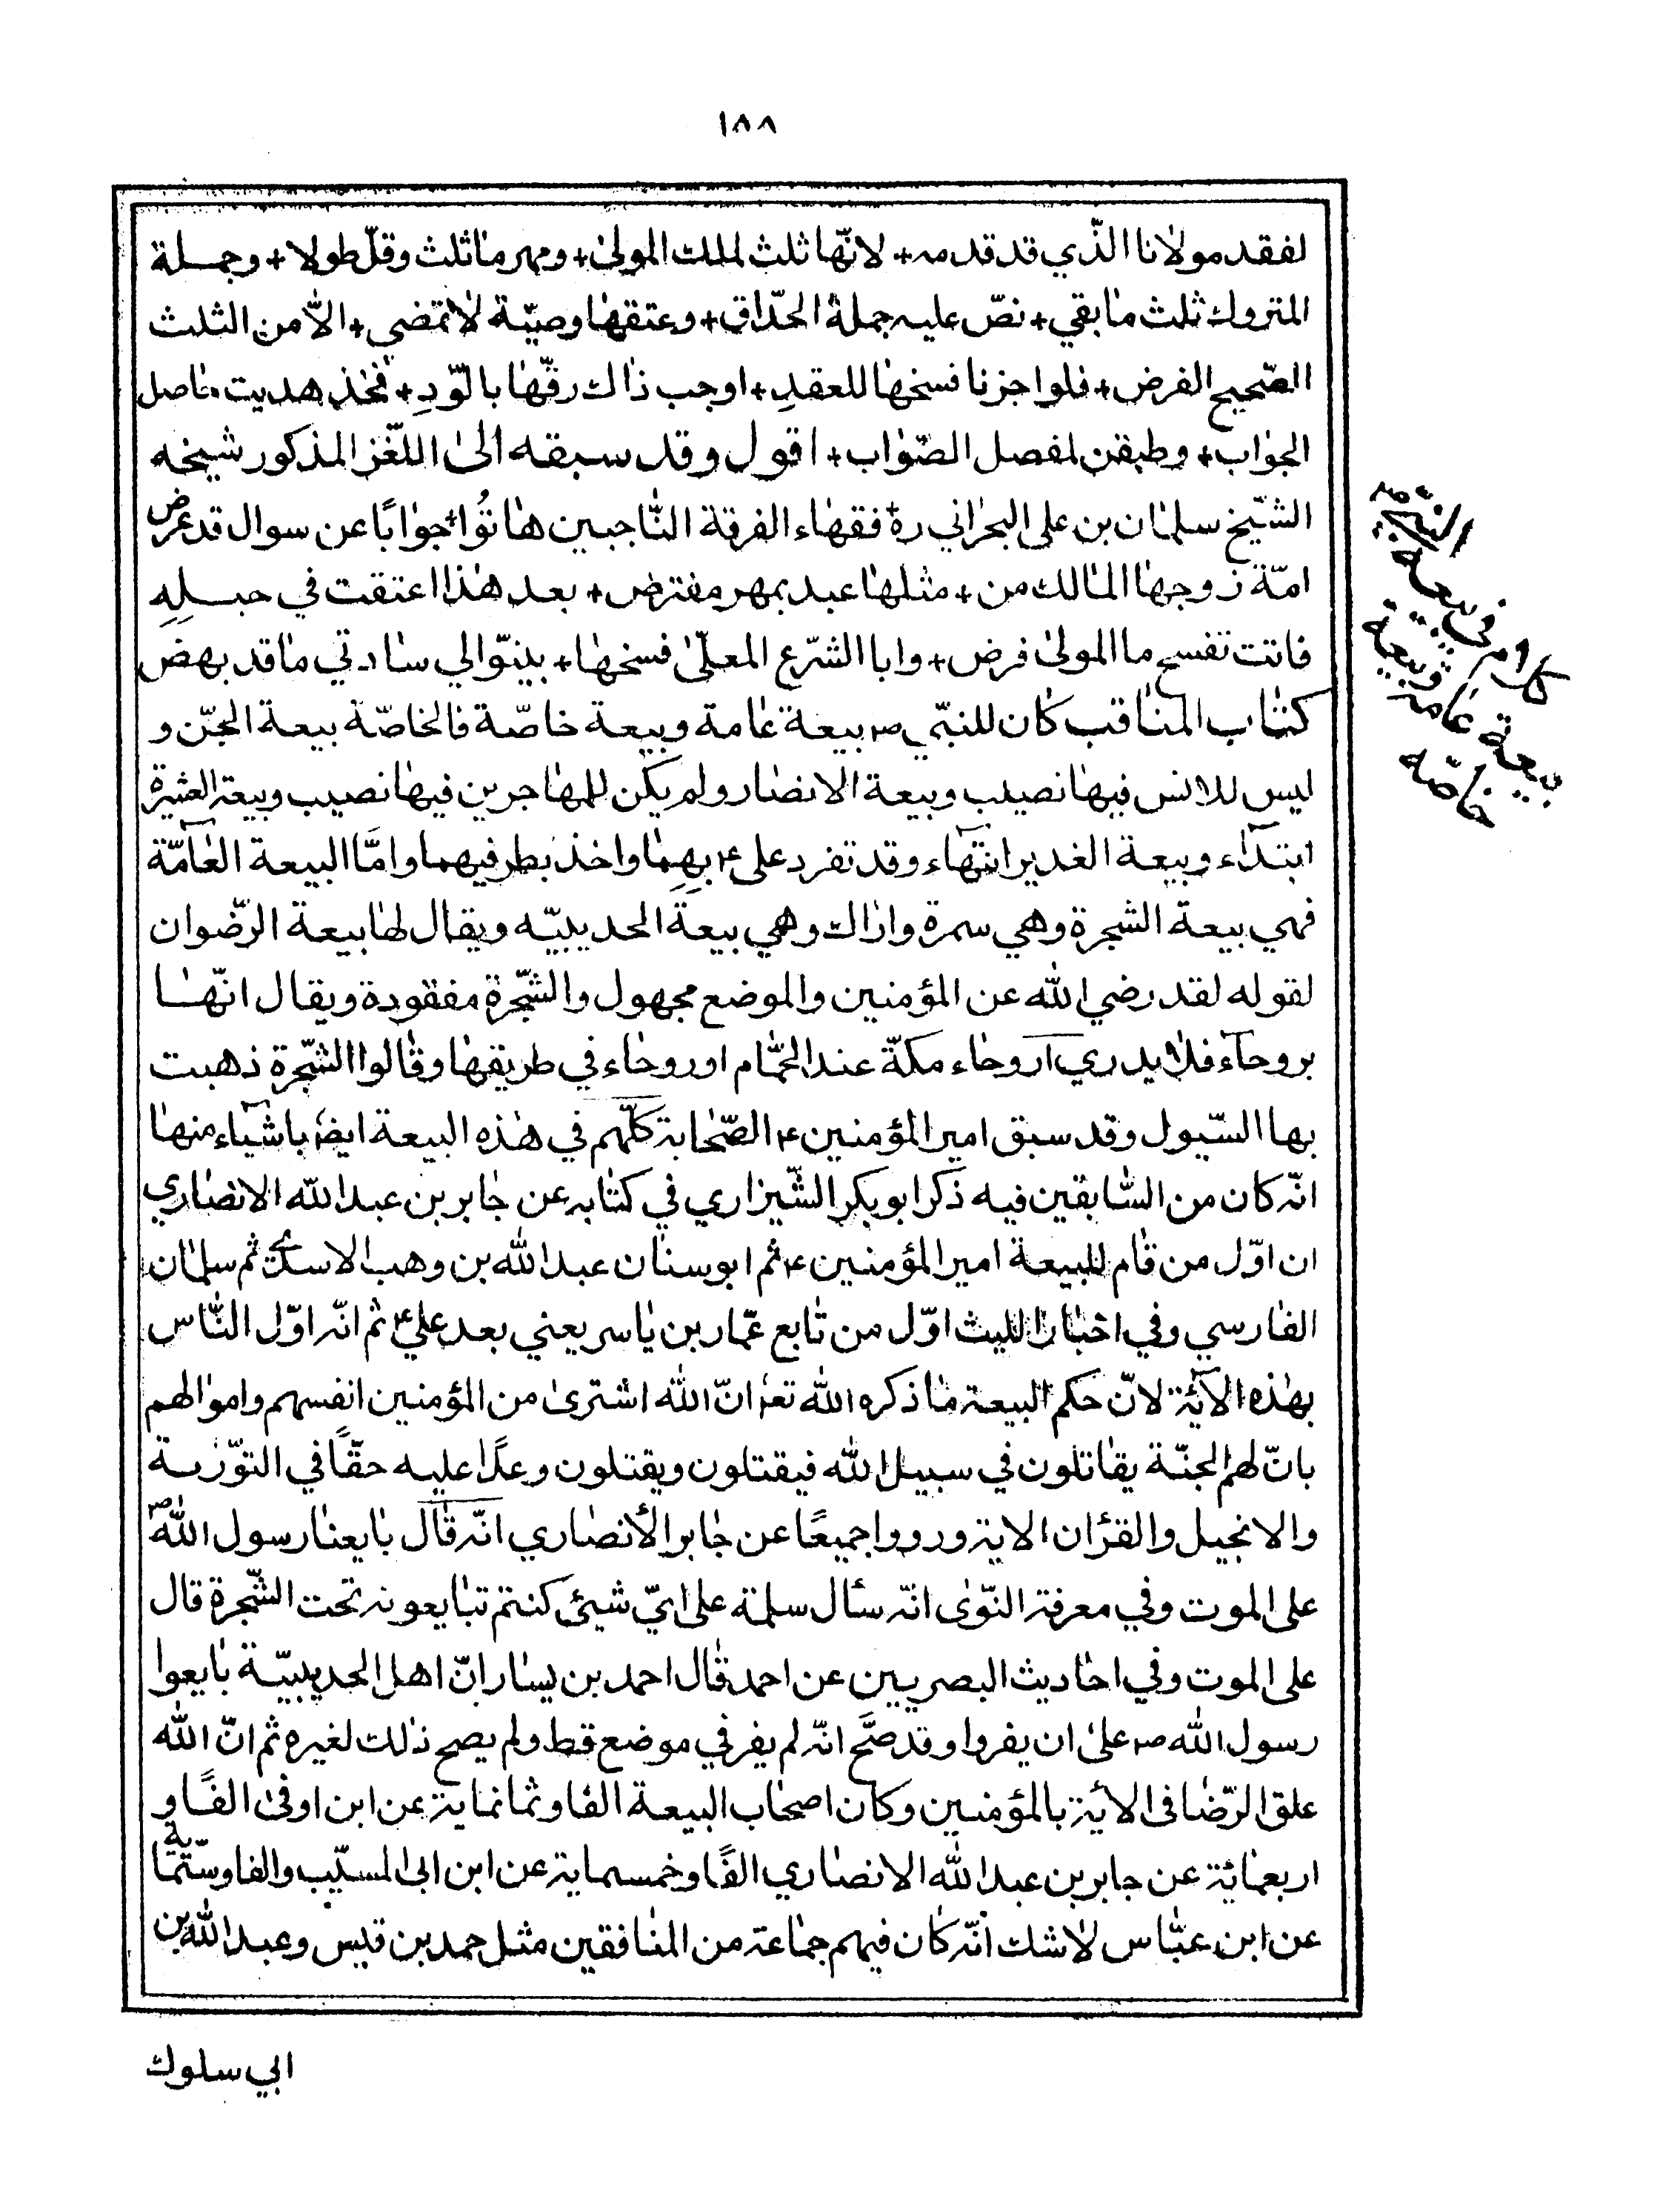 ١٨٨
لفقد مولانا الذّي قد قدمه + لانّها ثلث لملك المولى + ومهرماثلث وقلّ طولا + وجملة
المتروك ثلث ما بقي + نصّ عليه جملة الحذّاق + وعتقها وصيّة لا تمضي + الاّ من الثلث
الصّحيح الفرض + فلو اجزنا فسخها للعقدِ + اوجب ذاك رقّها بالرّدِ + فخذ هديت حاصل
الجواب + وطبقن لمفصل الصّواب + اقول وقد سبقه الى اللّغز المذكور شيخه
الشّيخ سلمان بن على البحراني ره + فقهاء الفرقة النّاجبين هاتُوا + جوابًا عن سوال قد عرض
امّة زوجها المالك من + مثلها عبد بمهر مفترض + بعد هذا اعتقت في حبلِهِ
فاتت تفسح ما المولى فرض + وابا الشّرع المعلّى فسخها + بينّوا لي سادتي ما قد بهض
كتاب المناقب كان للنبّي ص بيعة عامة وبيعة خاصّة فالخاصّة بيعة الجّن و
ليس للانس فيها نصيب وبيعة الانصار ولم يكن للمهاجرين فيها نصيب وبيعة العشيرة
ابتدآء وبيعة الغدير انتهآء وقد تفرد على ع بهِما واخذ بطرفيهما وامَّا البيعة العامّة
فهي بيعة الشجرة وهي سمرة واراك وهي بيعة الحديبيّه ويقال لها بيعة الرّضوان
لقوله لقد رضي الله عن المؤمنين والموضع مجهول والشّجرة مفقودة ويقال انّها
بروحآء فلا يدري آروحاء مكّة عند الحمّام اوروحاء في طريقها وقالوا الشّجرة ذهبت
بها السّيول وقد سبق امير المؤمنين ع الصّحابة كلّهم في هذه البيعة ايضا باشياء منها
انّه كان من السّابقين فيه ذكر ابو بكر الشّيرازي في كتابه عن جابر بن عبد الله الانصاري
ان اوّل من قام للبيعة امير المؤمنين ع ثم ابو سنان عبد الله بن وهب الاسدي ثم سلمان
الفارسي وفي اخبار الليث اوّل من تابع عمّار بن ياسر يعني بعد علي ع ثم انّه اوّل النّاس
بهذه الآية لانّ حكم البيعة ما ذكره الله تعا انّ الله اشترى من المؤمنين انفسهم واموالهم
بانّ لهم الجنّة يقاتلون في سبيل الله فيقتلون ويقتلون وعدًا عليه حقًّا في التوّرية
والانجيل والقرأن الاية ورووا جميعًا عن جابر الأنصاري انّه قال بايعنا رسول الله ص
على الموت وفي معرفة النّوى انّه سأل سلمة على ايّ شيئ كنتم تبايعونه تحت الشّجرة قال
على الموت وفي احاديث البصريين عن احمد قال احمد بن يسار انّ اهل الحديبيّة بايعوا
رسول الله ص على ان يفروا وقد صَّح انّه لم يفر في موضع قط ولم يصح ذلك لغيره ثم انّ الله
علق الرّضا فى الأية بالمؤمنين وكان اصحاب البيعة الفا وثمانماية عن ابن اوفى الفًا و
اربعمائة عن جابر بن عبد الله الانصاري الفًا وخمسماية عن ابن ابى المسيّب والفا وستّماية
عن ابن عبّاس لا شك انّه كان فيهم جماعة من المنافقين مثل حمد بن قيس وعبد الله بن
ابي سلوك
كلام في بيعة النبّي ص
بيعة عامة وبيعة
خاصّه